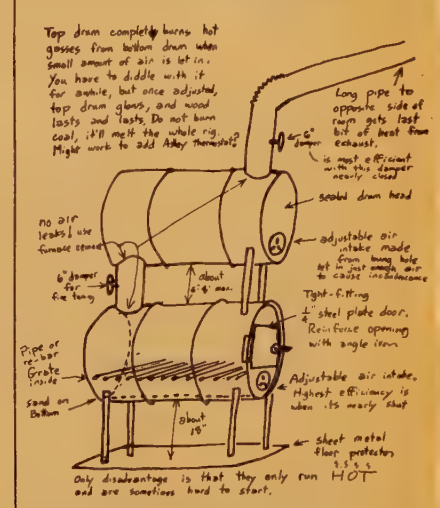 Top drum completely burns hot
gasses from bottom drum when
small amount of air is let in.
You have to diddle with it
for awhile, but once adjusted,
top drum glows, and wood
lasts and lasts. Do not burn
coal, it'll melt the whole rig.
Might work to add Ashley thermostat?
Long pipe to
opposite side of
room gets last
bit of heat from
exhaust.
6"
damper
is most efficient
with this damper
nearly closed
sealed drum head
no air
leaks! use
furnace cement
adjustable air
intake made
from bung hole
let in just enough air
to cause incandescence
6" damper
for
fine tuning
about
6"-8" max.
Tight-fitting
1/4" steel plate door.
Reinforce opening
with angle iron
Pipe or
re-bar
Grate
inside
Adjustable air intake.
Highest efficiency is
when its nearly shut
sand on
Bottom
about
18"
sheet metal
floor protector
Only disadvantage is that they only run HOT
and are sometimes hard to start.